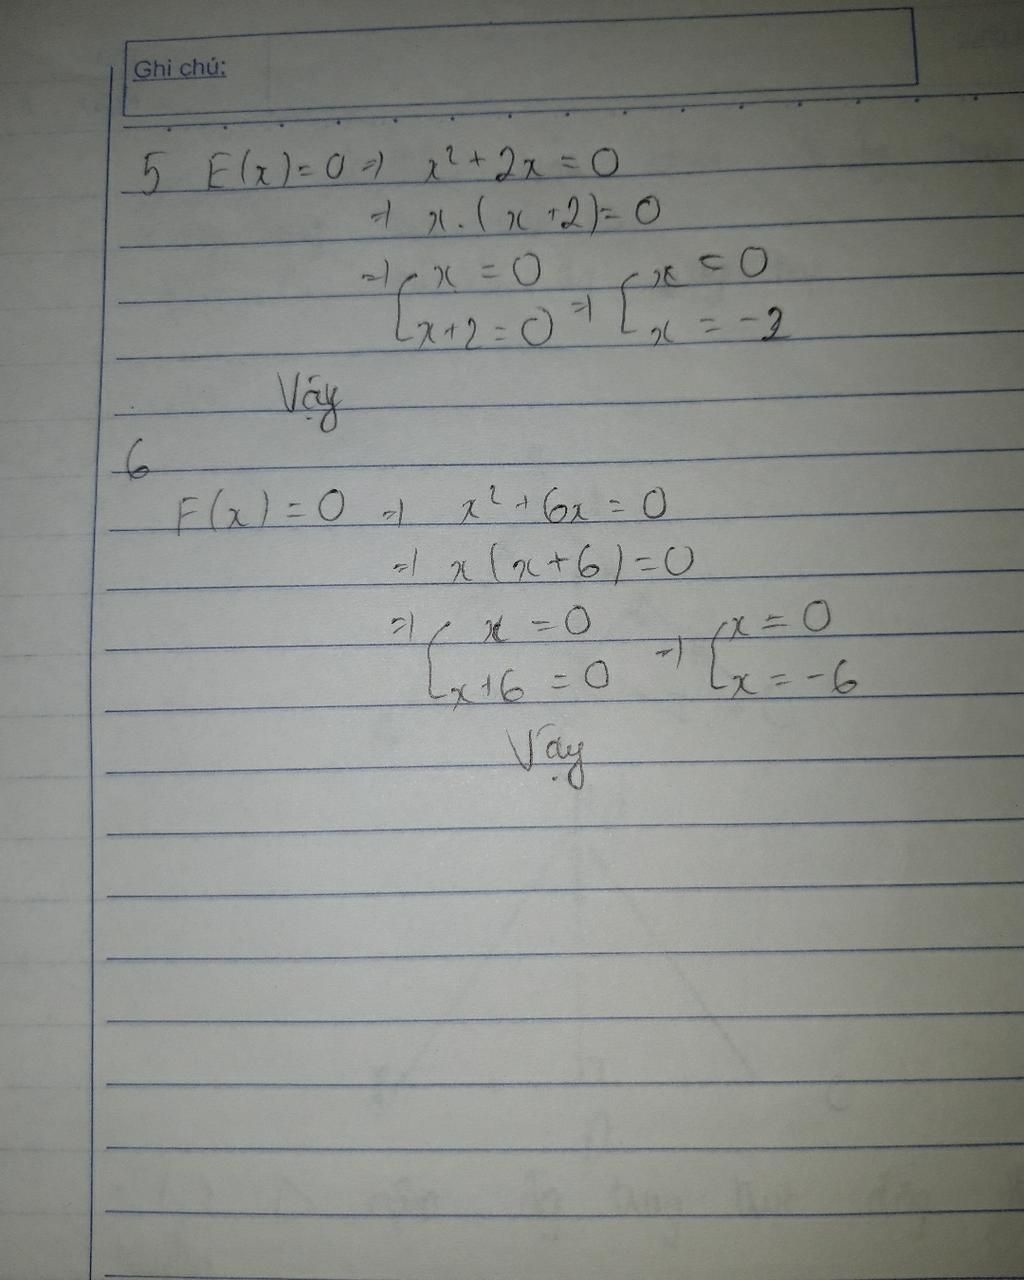 Ghi chú:
5 E(x)=0 => x² + 2x = 0
=> x.(x+2)=0
=> [x = 0 => [x = 0
x+2=0 x = -2
Vậy
6
F(x)=0 => x² + 6x = 0
=> x(x+6)=0
=> [x = 0 => [x = 0
x+6 = 0 x = -6
Vậy